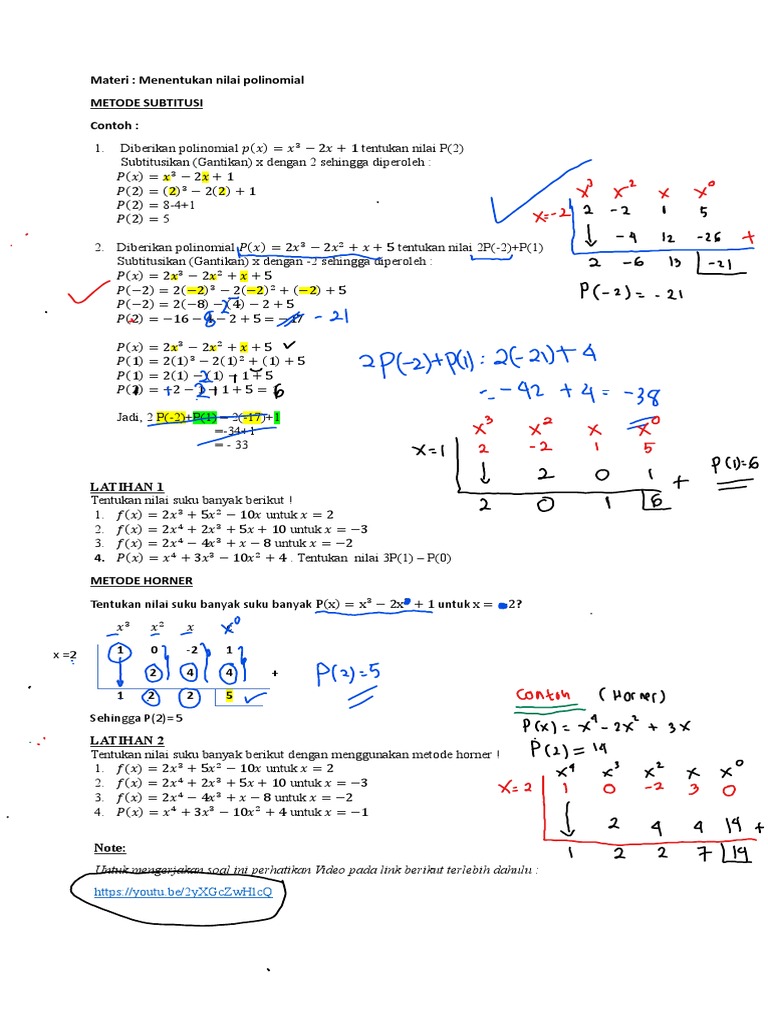 Materi : Menentukan nilai polinomial
METODE SUBTITUSI
Contoh :
1. Diberikan polinomial p(x) = x³ − 2x + 1 tentukan nilai P(2)
Subtitusikan (Gantikan) x dengan 2 sehingga diperoleh :
P(x) = x³ − 2x + 1
P(2) = (2)³ − 2(2) + 1
P(2) = 8-4+1
P(2) = 5
x³ x² x x⁰
x=-2 2 -2 1 5
↓ -4 12 -26 +
2 -6 13 -21
P(-2) = -21
2. Diberikan polinomial P(x) = 2x³ − 2x² + x + 5 tentukan nilai 2P(-2)+P(1)
Subtitusikan (Gantikan) x dengan -2 sehingga diperoleh :
P(x) = 2x³ − 2x² + x + 5
P(−2) = 2(−2)³ − 2(−2)² + (−2) + 5
P(−2) = 2(−8) − 2(4) − 2 + 5
P(2) = −16 − 8 − 2 + 5 = −17 -21
P(x) = 2x³ − 2x² + x + 5
P(1) = 2(1)³ − 2(1)² + (1) + 5
P(1) = 2(1) − 2(1) + 1 + 5
P(1) = +2 − 2 + 1 + 5 = 6
2P(-2)+P(1) : 2(-21)+ 4
= -42 + 4 = -38
Jadi, 2 P(-2)+P(1) = 2(-17)+1
=-34+1
= - 33
x³ x² x x⁰
x=1 2 -2 1 5
↓ 2 0 1 +
2 0 1 6
P(1)=6
LATIHAN 1
Tentukan nilai suku banyak berikut !
1. f(x) = 2x³ + 5x² − 10x untuk x = 2
2. f(x) = 2x⁴ + 2x³ + 5x + 10 untuk x = −3
3. f(x) = 2x⁴ − 4x³ + x − 8 untuk x = −2
4. P(x) = x⁴ + 3x³ − 10x² + 4 . Tentukan nilai 3P(1) – P(0)
METODE HORNER
Tentukan nilai suku banyak suku banyak P(x) = x³ − 2x + 1 untuk x = 2?
x³ x² x x⁰
x =2 1 0 -2 1
2 4 4 +
1 2 2 5
P(2) = 5
Sehingga P(2)= 5
LATIHAN 2
Tentukan nilai suku banyak berikut dengan menggunakan metode horner !
1. f(x) = 2x³ + 5x² − 10x untuk x = 2
2. f(x) = 2x⁴ + 2x³ + 5x + 10 untuk x = −3
3. f(x) = 2x⁴ − 4x³ + x − 8 untuk x = −2
4. P(x) = x⁴ + 3x³ − 10x² + 4 untuk x = −1
Contoh (Horner)
P(x) = x⁴ - 2x² + 3x
P(2) = 14
x⁴ x³ x² x x⁰
x=2 1 0 -2 3 0
↓ 2 4 4 14 +
1 2 2 7 14
Note:
Untuk mengerjakan soal ini perhatikan Video pada link berikut terlebih dahulu :
https://youtu.be/2yXGcZwHlcQ